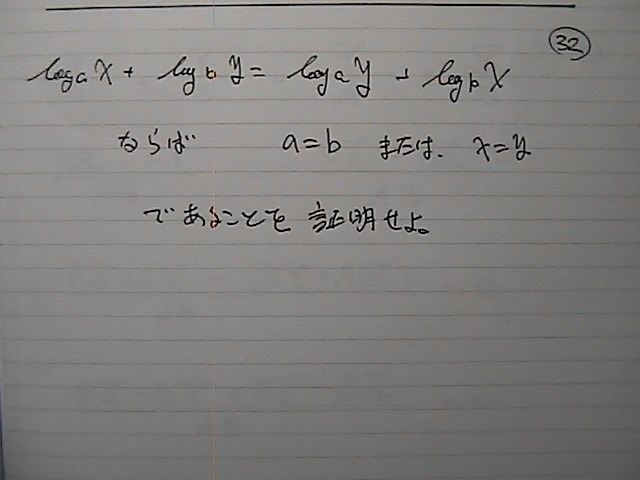 ㉜
log_a X + log_b Y = log_a Y + log_b X
ならば a=b または、x=y
であることを 証明せよ。